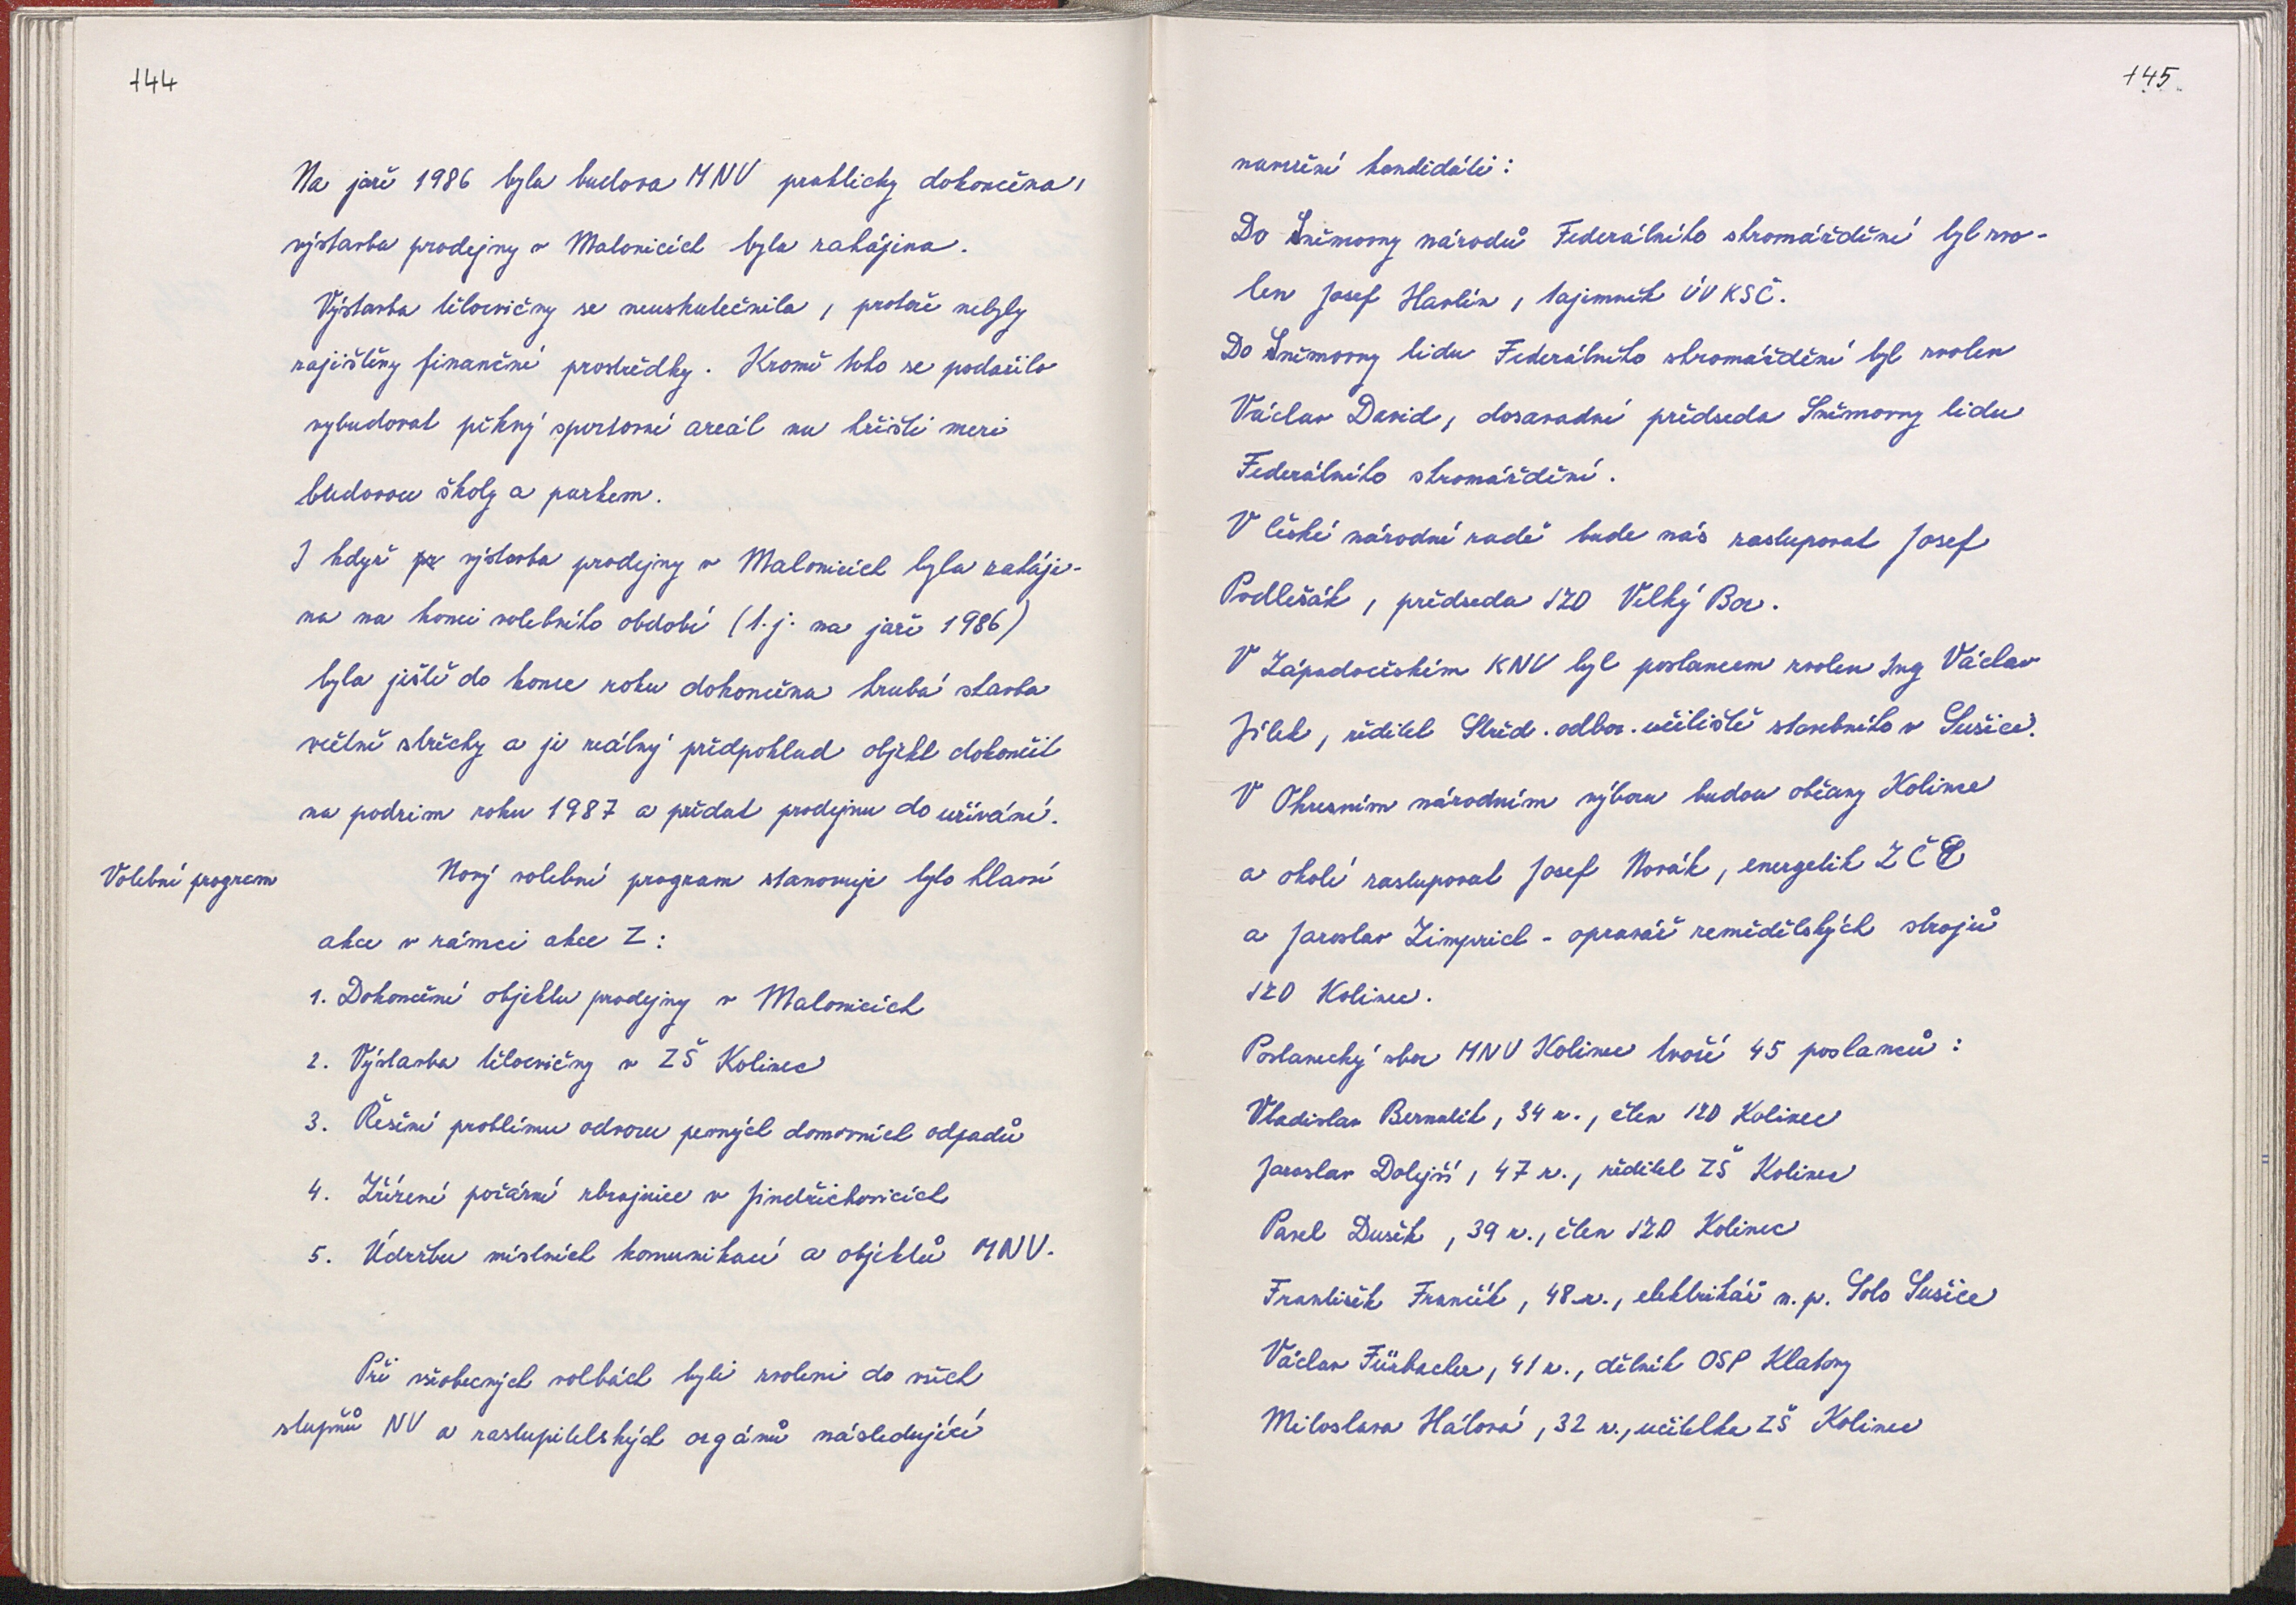 144
Na jaře 1986 byla budova MNV prakticky dokončena,
výstavba prodejny v Malonicích byla zahájena.
Výstavba tělocvičny se neuskutečnila, protože nebyly
zajištěny finanční prostředky. Kromě toho se podařilo
vybudovat pěkný sportovní areál na hřišti mezi
budovou školy a parkem.
I když výstavba prodejny v Malonicích byla zaháje-
na na konci volebního období (t.j. na jaře 1986)
byla ještě do konce roku dokončena hrubá stavba
včetně střechy a je reálný předpoklad objekt dokončit
na podzim roku 1987 a předat prodejnu do užívání.
Volební program
Nový volební program stanovuje tyto hlavní
akce v rámci akce Z:
1. Dokončení objektu prodejny v Malonicích
2. Výstavba tělocvičny v ZŠ Kolinec
3. Řešení problému odvozu pevných domovních odpadů
4. Zřízení požární zbrojnice v Jindřichovicích
5. Údržbu místních komunikací a objektů MNV.
Při všeobecných volbách byli zvoleni do všech
stupňů NV a zastupitelských orgánů následující
145.
navržení kandidáti:
Do Sněmovny národů Federálního shromáždění byl zvo-
len Josef Havlín, tajemník ÚV KSČ.
Do Sněmovny lidu Federálního shromáždění byl zvolen
Václav David, dosavadní předseda Sněmovny lidu
Federálního shromáždění.
V České národní radě bude nás zastupovat Josef
Podlešák, předseda JZD Velký Bor.
V Západočeském KNV byl poslancem zvolen Ing Václav
Jílek, ředitel Střed. odbor. učiliště stavebního v Sušici.
V Okresním národním výboru budou občany Kolince
a okolí zastupovat Josef Novák, energetik ZČE
a Jaroslav Zimprich - opravář zemědělských strojů
JZD Kolinec.
Poslanecký sbor MNV Kolinec tvoří 45 poslanců:
Vladislav Bernalík, 34 r., člen JZD Kolinec
Jaroslav Dolejší, 47 r., ředitel ZŠ Kolinec
Pavel Dušek, 39 r., člen JZD Kolinec
František Frančík, 48 r., elektrikář n.p. Solo Sušice
Václav Fürbacher, 41 r., dělník OSP Klatovy
Miloslava Hálová, 32 r., učitelka ZŠ Kolinec